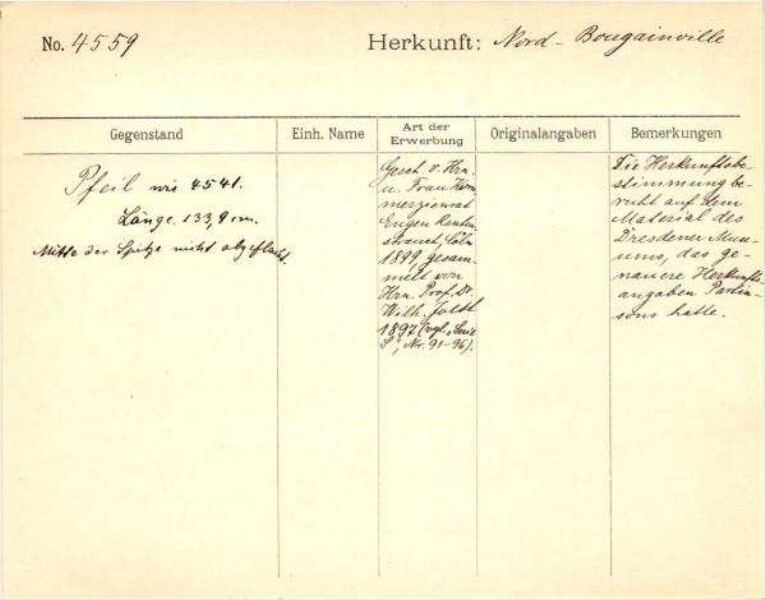 No. 4559 Herkunft: Nord-Bougainville
Gegenstand
Einh. Name
Art der
Erwerbung
Originalangaben
Bemerkungen
Pfeil wie 4541.
Länge. 133,9 cm.
Mitte der Spitze nicht abgeflacht.
Gesch. v. Hrn.
u. Frau Kom-
merzienrat
Eugen Rauten-
strauch, Cöln
1899, gesam-
melt von
Hrn. Prof. Dr.
Wilh. Joest
1897 (vgl. Serie
S", Nr. 91-96).
Die Herkunftsbe-
stimmung be-
ruht auf dem
Material des
Dresdener Muse-
ums, das ge-
nauere Herkunfts-
angaben Parkin-
sons hatte.